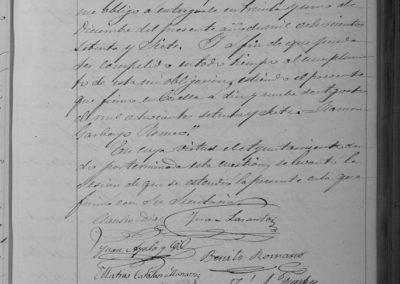 que obligo a entregarlo en treinta y uno de
Diciembre del presente año de mil ochocientos
Setenta y Siete. Y a fin de que pueda
ser compelido en todo tiempo al cumplimien-
to de esta mi obligacion, estiendo el presente
que firmo en a diez y nueve de Agosto
de mil ochocientos setenta y siete = Ramon
Garbayo Romero."
En cuya virtud el Ayuntamiento dan-
do por terminada esta cuestion, se levantó la
Sesion de que se estendió la presente acta que
firmó con Su Señoria.
Juan
Juan Ayala y Gil Benito Romano
Matias Catalan